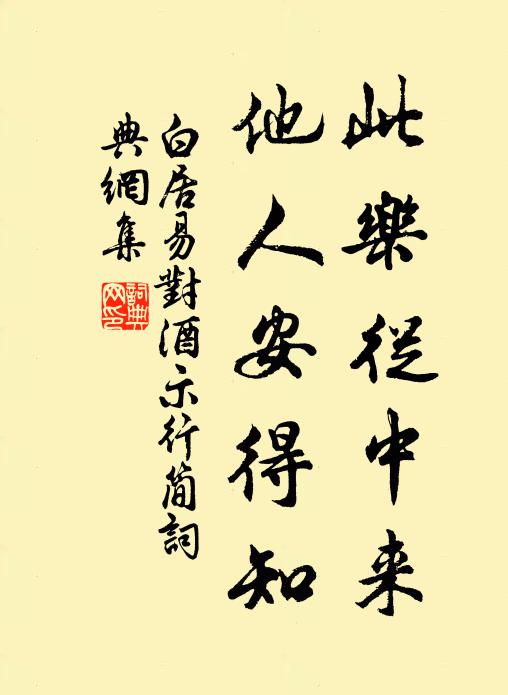 此樂從中来
他人安得知
白居易對酒示行簡詞
典網集
詞典網印